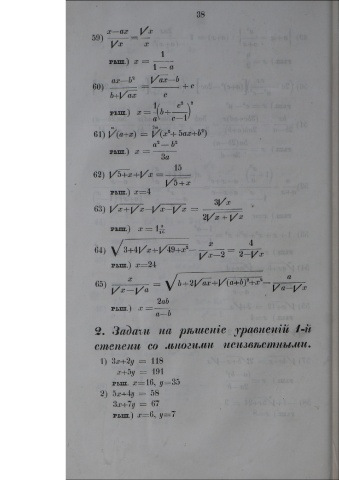 38
59) (x—ax)/√x = √x/x
рѣш.) x = 1/(1—a)
60) (ax—b²)/(b+√ax) = (√ax—b)/c + c
рѣш.) x = 1/a (b + c²/(c—1))²
61) (a+x) = (x²+5ax+b²)
рѣш.) x = (a²—b²)/3a
62) √5+x+√x = 15/√5+x
рѣш.) x=4
63) √x+√x—√x—√x = 3√x/2√x+√x
рѣш.) x = 1
64) √3+4√x+√49+x² = 4/2—√x
рѣш.) x=24
65) x/(√x—√a) √b+2√ax+√(a+b)²+x² a/(√a—√x)
рѣш.) x = 2ab/(a—b)
2. Задачи на рѣшеніе уравненій 1-й
степени со многими неизвѣстными.
1) 3x+2y = 118
x+5y = 191
рѣш. x=16, y=35
2) 5x+4y = 58
3x+7y = 67
рѣш.) x=6, y=7